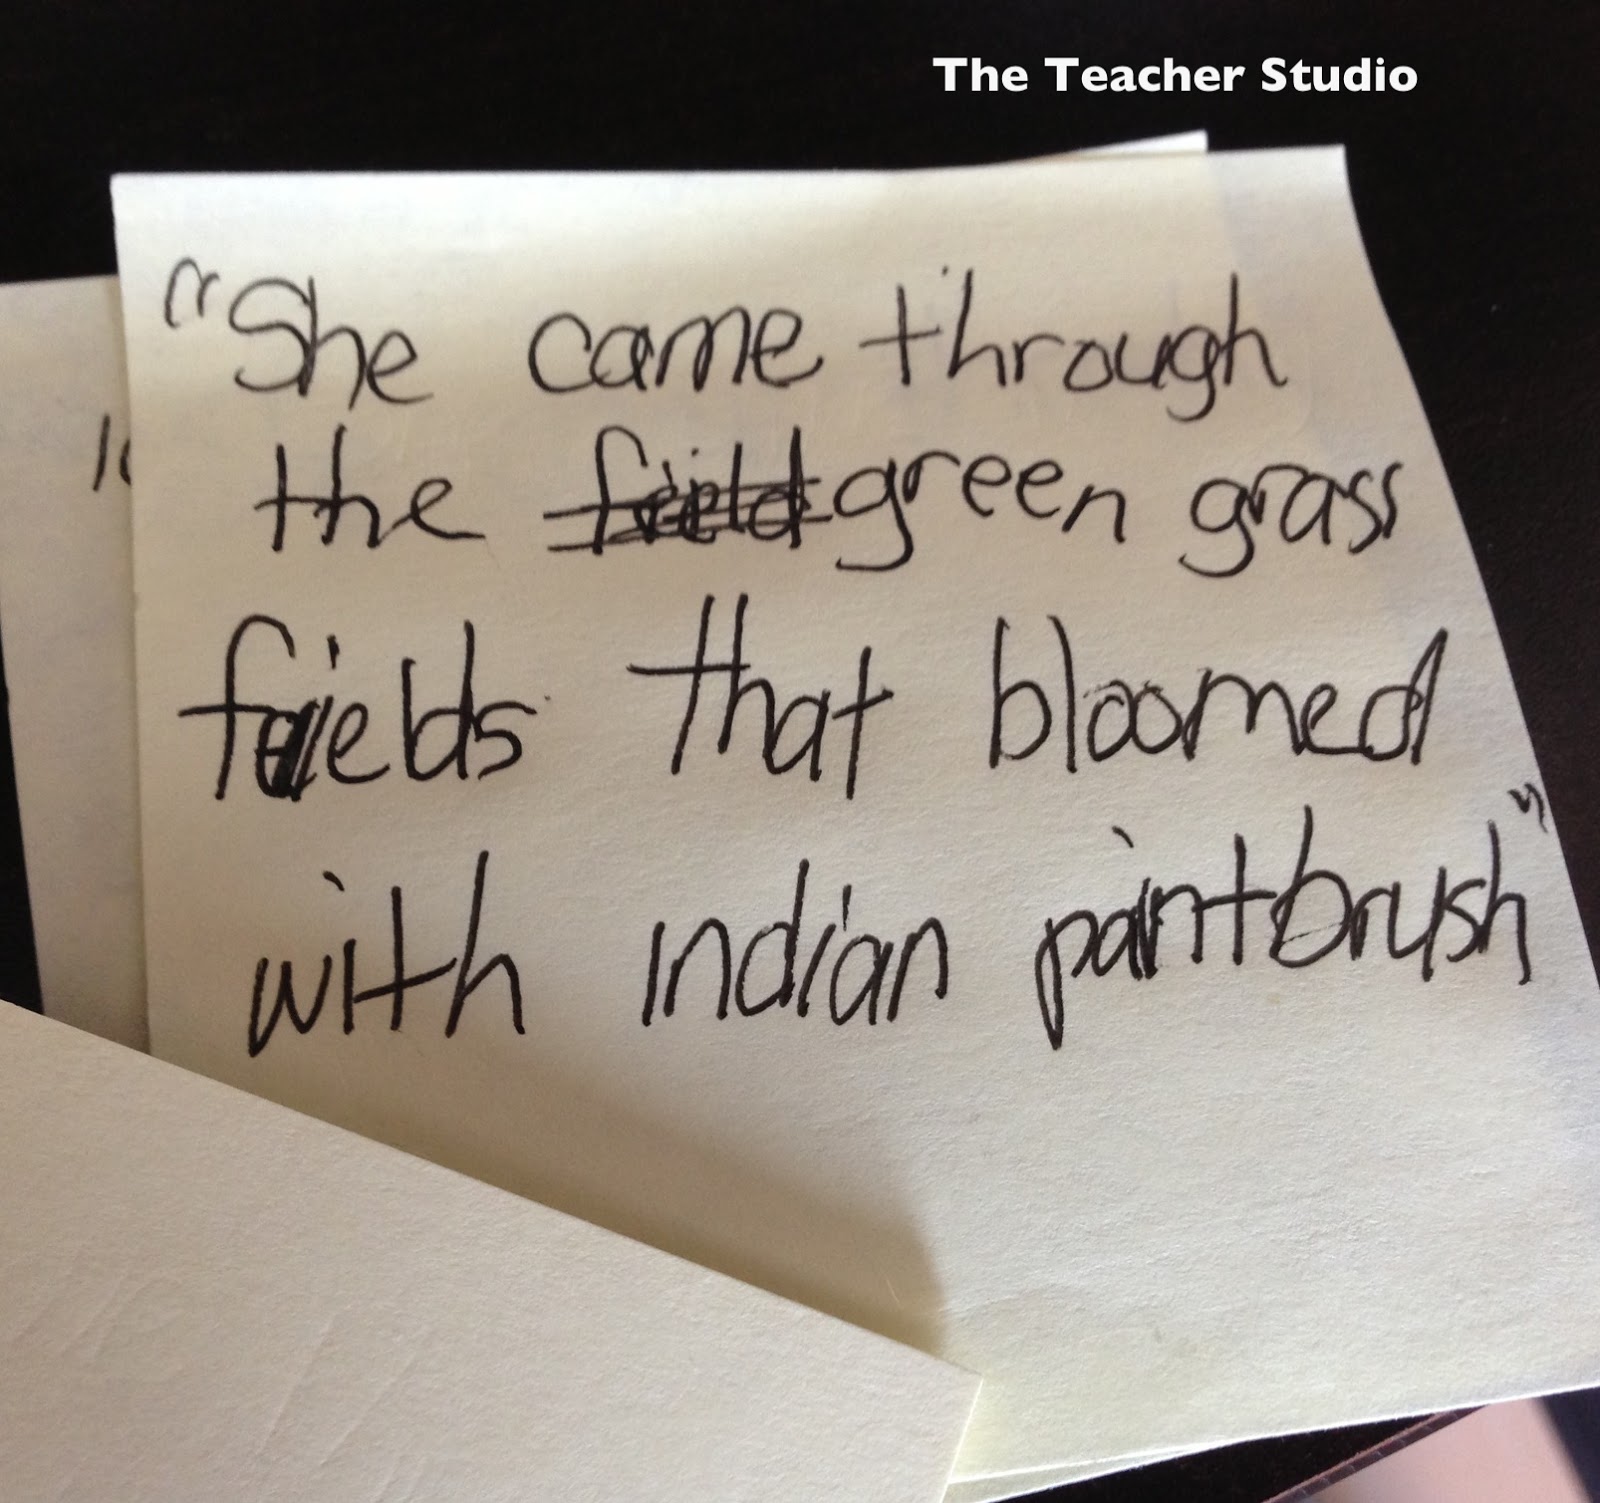 The Teacher Studio
"She came through
the field green grass
fields that bloomed
with indian paintbrush"